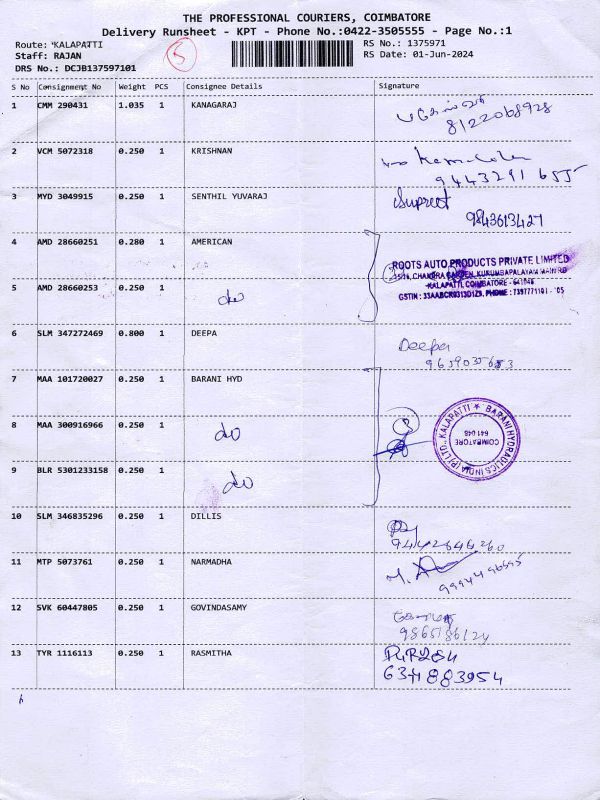 THE PROFESSIONAL COURIERS, COIMBATORE
Delivery Runsheet - KPT - Phone No.:0422-3505555 - Page No.:1
Route: KALAPATTI
RS No.: 1375971
Staff: RAJAN
5
RS Date: 01-Jun-2024
DRS No.: DCJB137597101
S No Consignment No Weight PCS Consignee Details Signature
1 CMM 290431 1.035 1 KANAGARAJ
8122068928
2 VCM 5072318 0.250 1 KRISHNAN
9443291655
3 MYD 3049915 0.250 1 SENTHIL YUVARAJ Supreet
9843613427
4 AMD 28660251 0.280 1 AMERICAN
ROOTS AUTO PRODUCTS PRIVATE LIMITED
KURUMBAPALAYAM MAIN RD
KALAPATTI, COIMBATORE - 641048
5 AMD 28660253 0.250 1 do
6 SLM 347272469 0.800 1 DEEPA Deepa
7 MAA 101720027 0.250 1 BARANI HYD
8 MAA 300916966 0.250 1 do
BARANI HYDRAULICS INDIA (P) LTD., KALAPATTI
COIMBATORE
641 048
9 BLR 5301233158 0.250 1 do
10 SLM 346835296 0.250 1 DILLIS
9442646260
11 MTP 5073761 0.250 1 NARMADHA
9994496595
12 SVK 60447805 0.250 1 GOVINDASAMY
9865186124
13 TYR 1116113 0.250 1 RASMITHA
6374883954